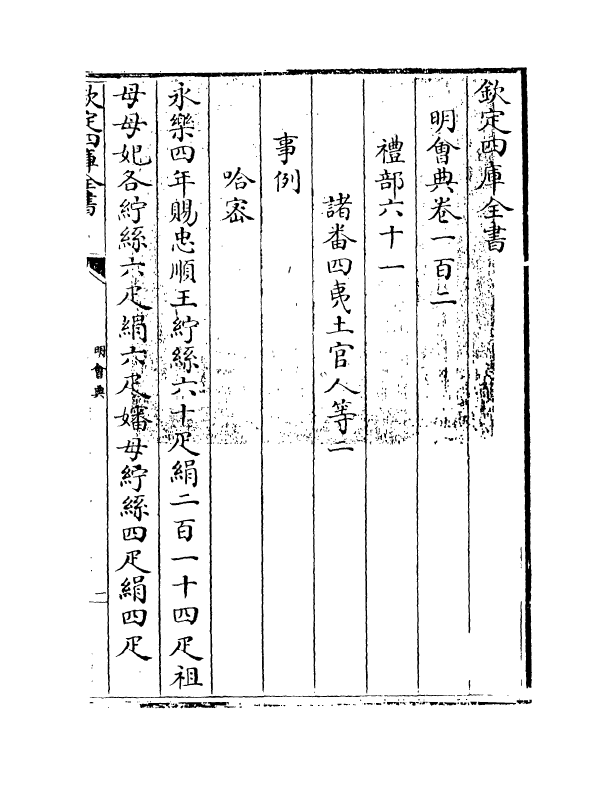 欽定四庫全書
明會典卷一百二
禮部六十一
諸番四夷土官人等二
事例
哈密
永樂四年賜忠順王紵絲六十疋絹二百一十四疋祖
母母妃各紵絲六疋絹六疋嬸母紵絲四疋絹四疋
欽定四庫全書
明會典